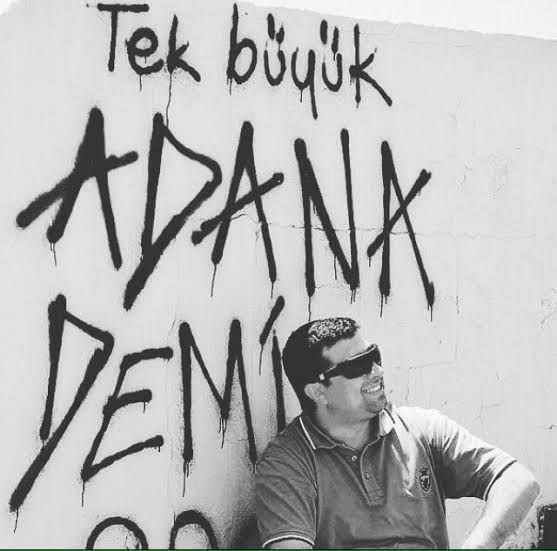 Tek büyük
ADANA
DEMİ